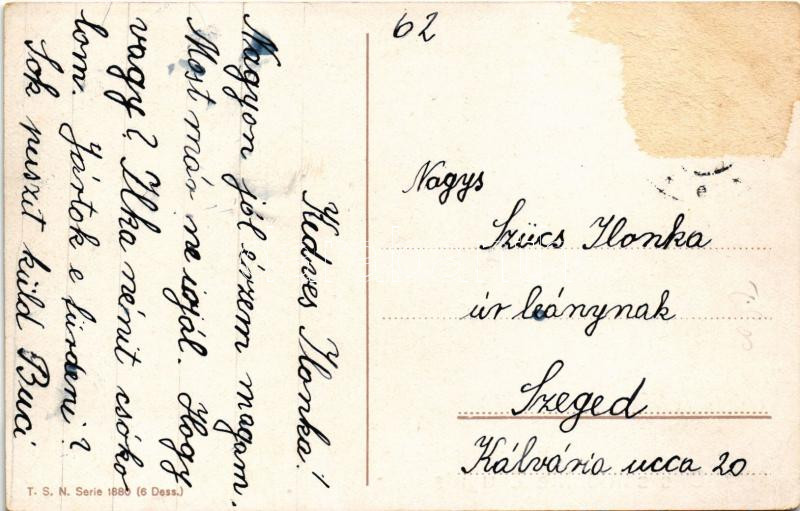 62
Kedves Ilonka!
Nagyon jól érzem magam.
Most már ne irjál. Hogy
vagy? Ilka nénit csóko
lom. Jártok e fürdeni?
Sok puszit küld Buci
Nagys
Szücs Ilonka
úr leánynak
Szeged
Kálvária ucca 20
T. S. N. Serie 1880 (6 Dess.)